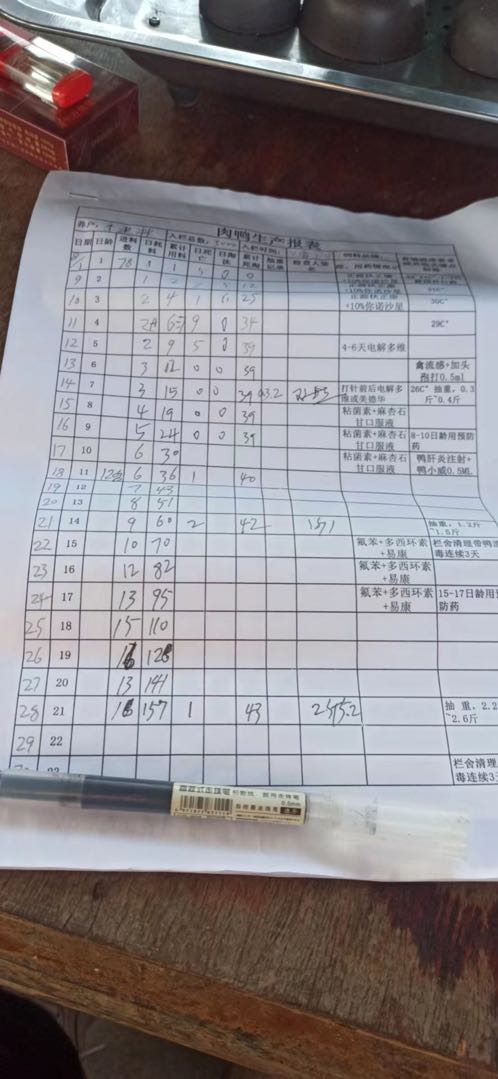 肉鸭生产报表
养户: 入栏总数: 入栏时间:
日期 日龄 进料数 日耗料 累计用料 日死亡 日淘汰 累计死淘 抽重记录 检查人签名
1 1 78 1 1 0 0
9 2 1 2 12
10 3 2 4 1 6 25 +10%你诺沙星 30C°
11 4 9 0 34 29C°
12 5 2 9 5 0 39 4-6天电解多维
13 6 3 12 0 0 39 禽流感+加头孢打0.5ml
14 7 3 15 0 0 39 93.2 打针前后电解多维或美德华 26C° 抽重，0.3斤~0.4斤
15 8 4 19 0 0 39 粘菌素+麻杏石甘口服液
16 9 5 24 0 0 39 粘菌素+麻杏石甘口服液 8-10日龄用预防药
17 10 6 30 粘菌素+麻杏石甘口服液 鸭肝炎注射+鸭小威0.5ML
18 11 6 36 1 40
19 12 7 43
20 13 8 51
21 14 9 60 2 42 151 抽重，1.2斤~1.5斤
22 15 10 70 氟苯+多西环素+易康 栏舍清理带鸭消毒连续3天
23 16 12 82 氟苯+多西环素+易康
24 17 13 95 氟苯+多西环素+易康 15-17日龄用预防药
25 18 15 110
26 19 128
27 20 13 141
28 21 16 157 1 43 抽重，2.2~2.6斤
29 22
23 栏舍清理 毒连续3天
直液式走珠笔
0.5mm